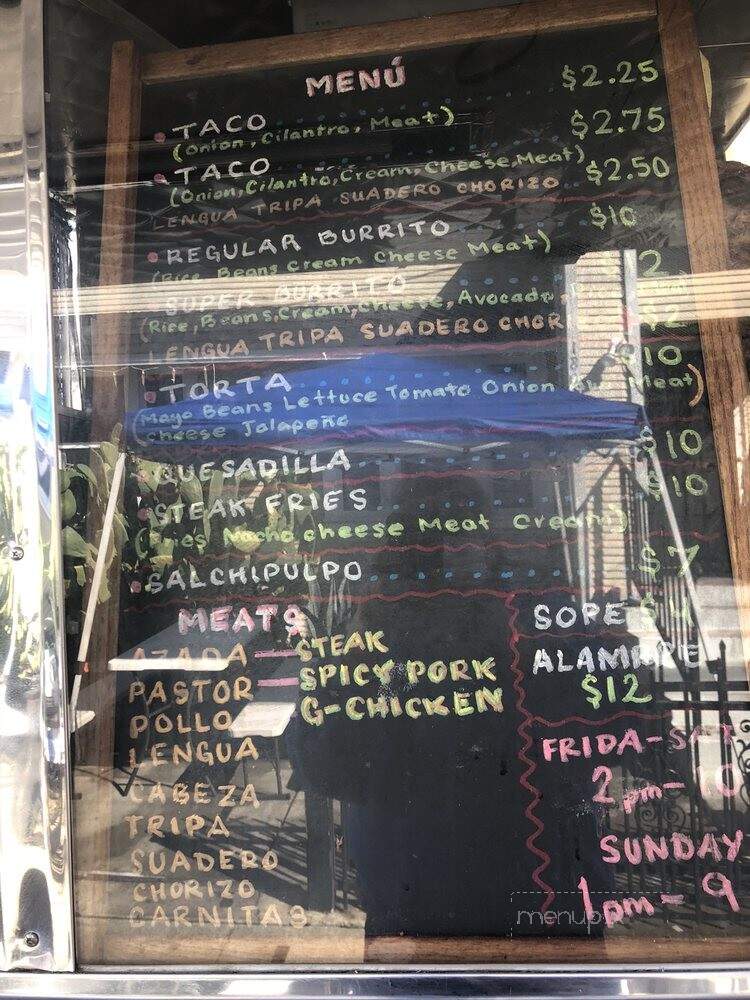 MENÚ
• TACO $2.25
(Onion, Cilantro, Meat)
• TACO $2.75
(Onion, Cilantro, Cream, Cheese, Meat)
LENGUA TRIPA SUADERO CHORIZO $2.50
• REGULAR BURRITO $10
(Rice Beans Cream Cheese Meat)
SUPER BURRITO 2
(Rice, Beans, Cream, Cheese, Avocado,
LENGUA TRIPA SUADERO CHOR $2
• TORTA 10
(Mayo Beans Lettuce Tomato Onion Meat)
Cheese Jalapeño
• QUESADILLA $10
• STEAK FRIES $10
(Fries Nacho cheese Meat Cream)
• SALCHIPULPO $7
MEATS
AZADA — STEAK
PASTOR — SPICY PORK
POLLO G-CHICKEN
LENGUA
CABEZA
TRIPA
SUADERO
CHORIZO
CARNITAS
SOPE $4
ALAMBRE
$12
FRIDA-SAT
2pm-10
SUNDAY
1pm-9
menup